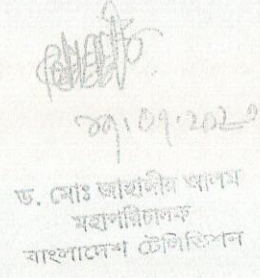 ০৭.০৭.২০২০
ড. মোঃ জাহাঙ্গীর আলম
মহাপরিচালক
বাংলাদেশ টেলিভিশন